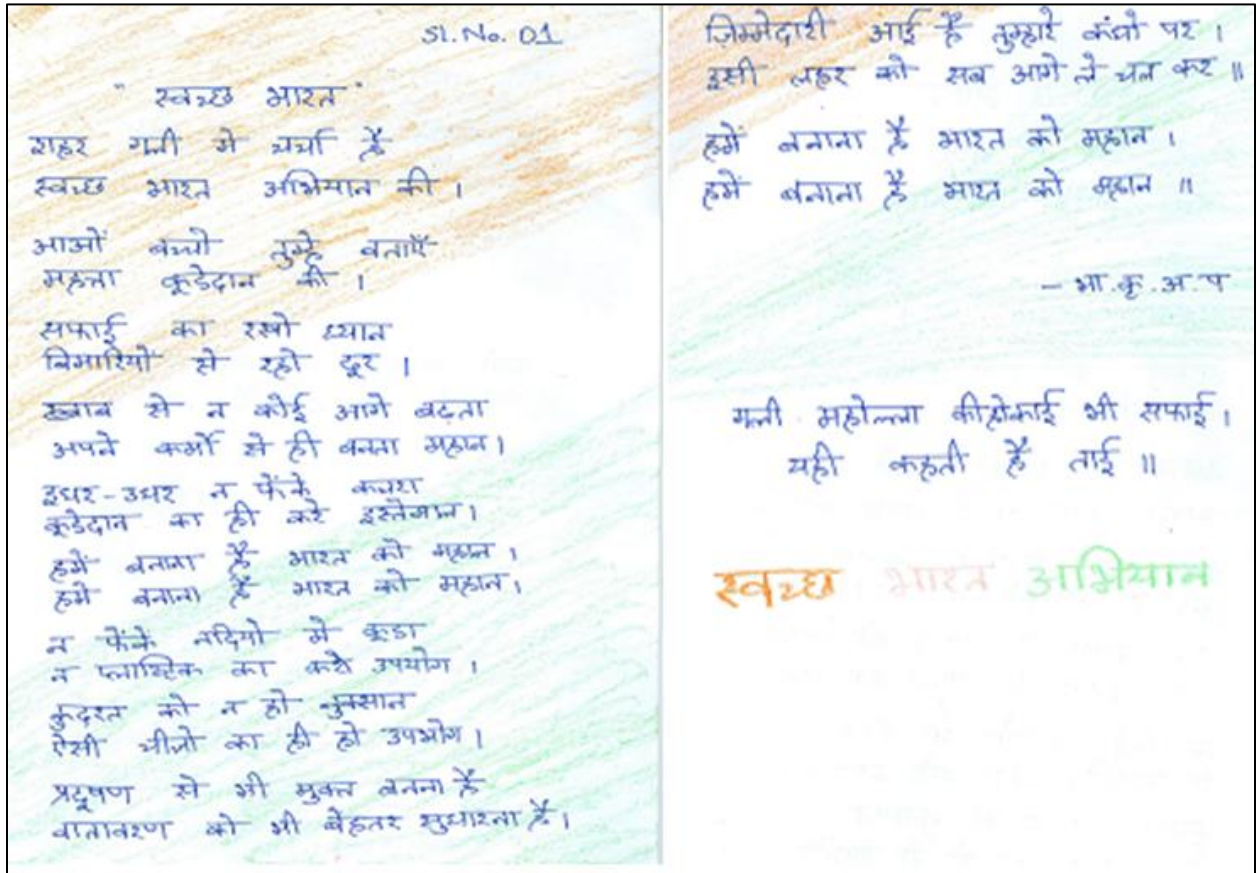 Sl. No. 01
" स्वच्छ भारत "
शहर गली मे चर्चा है
स्वच्छ भारत अभियान की ।
आओं बच्चो तुम्हे बताएँ
महत्ता कूडेदान की ।
सफाई का रखो ध्यान
बिमारियो से रहो दूर ।
ख्वाब से न कोई आगे बढता
अपने कर्मो से ही बनता महान ।
इधर-उधर न फेंके कचरा
कूडेदान का ही करे इस्तेमाल ।
हमें बनाना है भारत को महान ।
हमें बनाना है भारत को महान ।
न फेंके नदियो मे कूडा
न प्लास्टिक का करो उपयोग ।
कुदरत को न हो नुक्सान
ऐसी चीजो का ही हो उपभोग ।
प्रदूषण से भी मुक्त बनना है
वातावरण को भी बेहतर सुधारना है ।
ज़िम्मेदारी आई है तुम्हारे कंधो पर ।
इसी लहर को सब आगे ले चल कर ॥
हमें बनाना है भारत को महान ।
हमें बनाना है भारत को महान ॥
– भा.कृ.अ.प
गली महोल्ला की भी सफाई ।
यही कहती है ताई ॥
स्वच्छ भारत अभियान